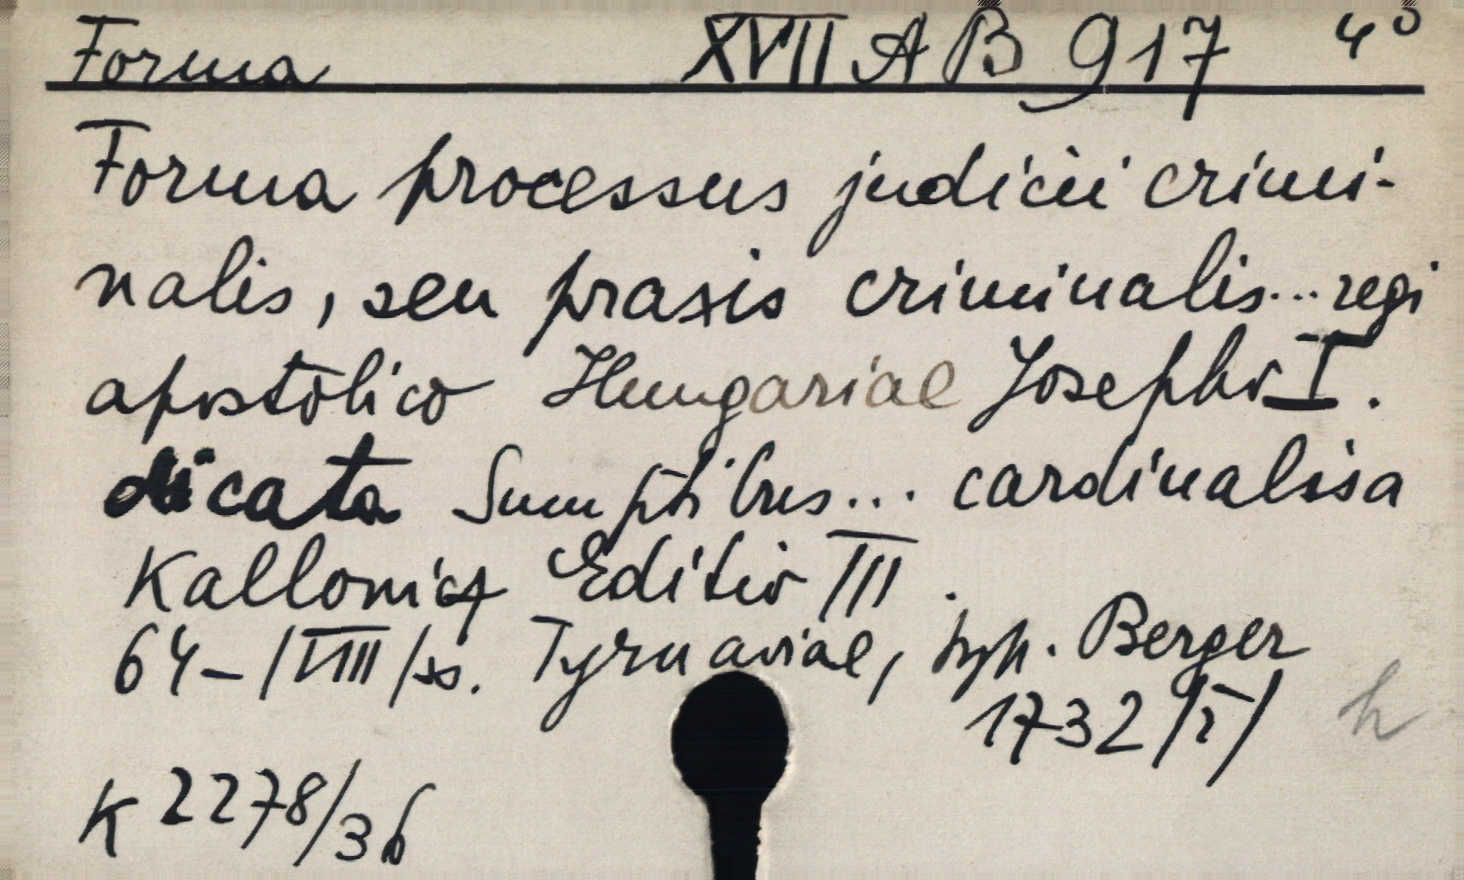 Forma XVII AB 917 4°
Forma processus judicii crimi-
nalis, seu praxis criminalis... regi
apostolico Hungariae Josepho I.
dicata Sumptibus... cardinalisa
Kallonicz Editio III.
64-/VIII/ss. Tyrnaviae, typ. Berger
1732 /I/ h
K 2278/36